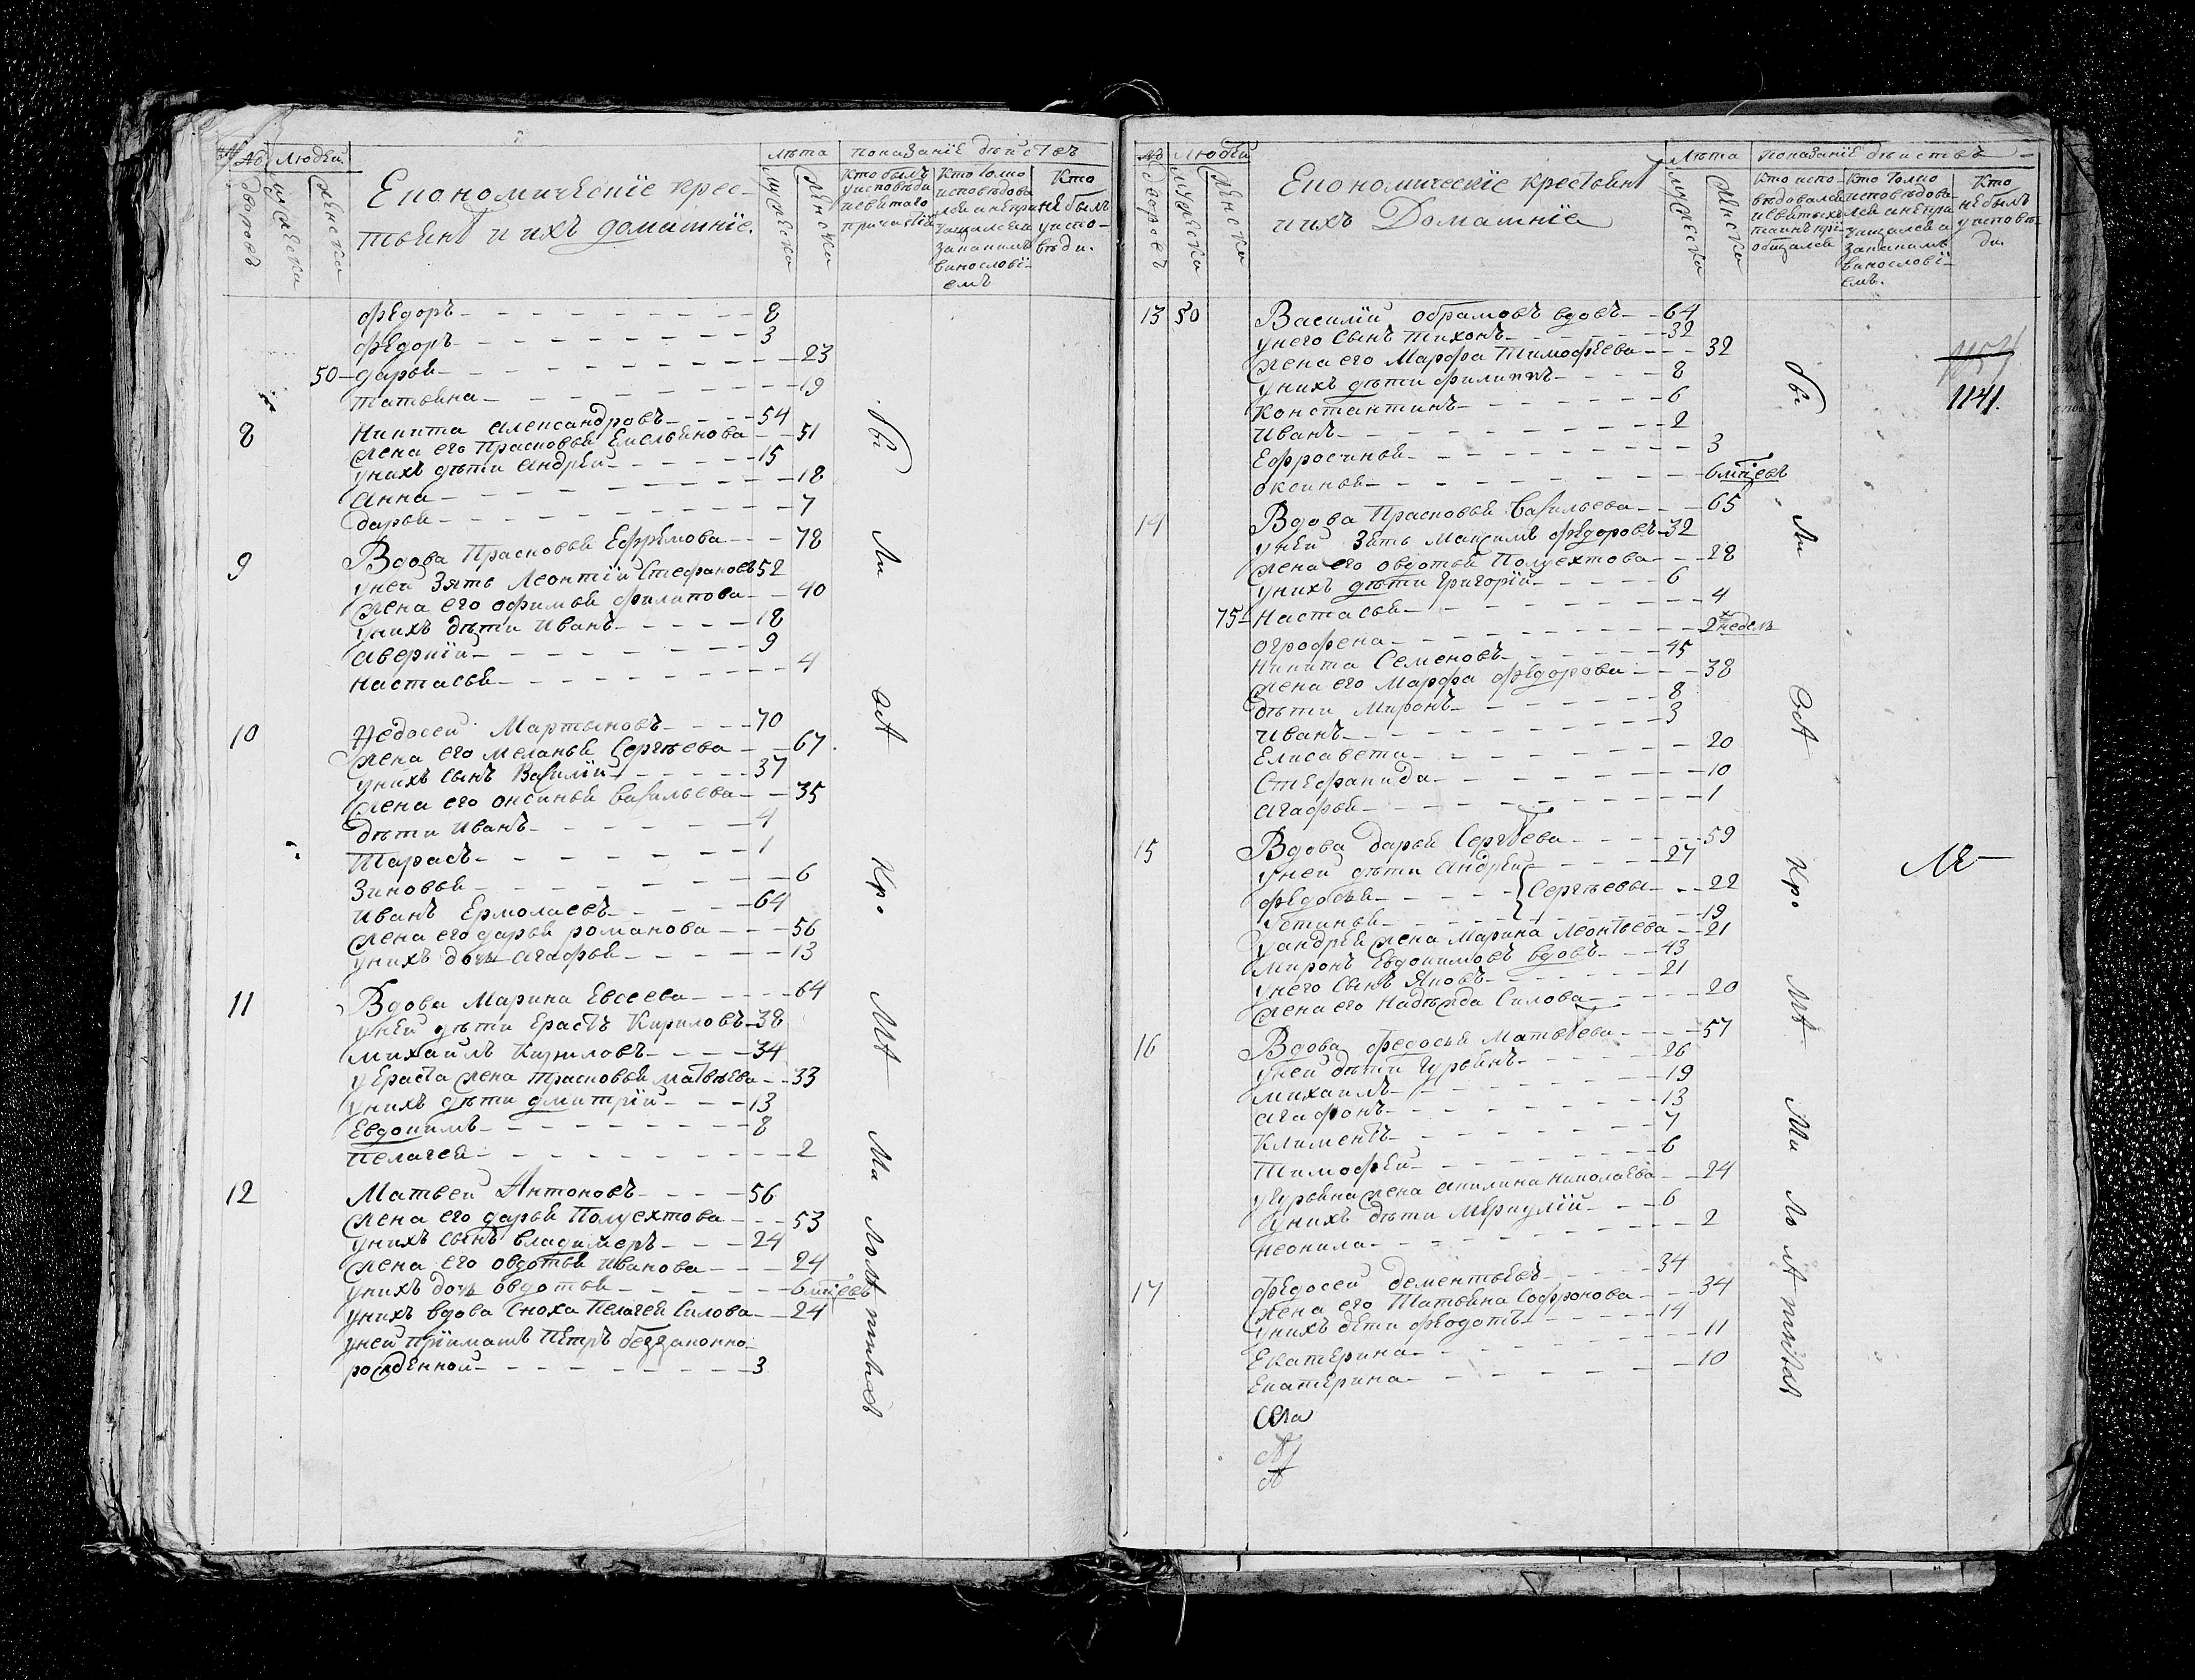 № Людей
Економическїе крес-
тьянѣ и ихъ домашнїе.
лѣта показанїе дѣйствъ
дворовъ мужеска женска
мужеска женска
Кто былъ
у исповѣди
и святаго
причастїя
Кто толко
исповѣдова
лся а не при
чащался и
за какимъ
винословї-
емъ
Кто
не былъ
у испо-
вѣди.
Федоръ - 8
Федоръ - 3
50 - дарья - 23
Татьяна - 19
8 Никита александровъ - 54
жена его Прасковья Емельянова - 51
у нихъ дѣти андрей - 15
анна - 18
дарья - 7
9 Вдова Прасковья Ефремова - 78
у ней Зять Леонтїй Стефановъ 52
жена его офимья филипова - 40
у нихъ дѣти иванъ - 18
аверкїй - 9
настасья - 4
10 Федосей Мартыновъ - 70
жена его меланья Сергѣева - 67
у нихъ сынъ Василїй - 37
жена его оксинья васильева - 35
дѣти иванъ - 4
Тарасъ - 1
Зиновья - 6
иванъ Ермолаевъ - 64
жена его дарья романова - 56
у нихъ дочь агафья - 13
11 Вдова Марина Евсеева - 64
у ней дѣти ерастъ Кириловъ - 38
михайлъ Кириловъ - 34
у Ераста жена прасковья матвѣева - 33
у нихъ дѣти дмитрїй - 13
Евдокимъ - 8
пелагея - 2
12 Матвей Антоновъ - 56
жена его дарья Полуехтова - 53
у нихъ сынъ владимеръ - 24
жена его овдотья иванова - 24
у нихъ дочь овдотья - 6 мцевъ
у нихъ вдова Сноха Пелагея Силова - 24
у ней прїимашъ Петръ беззаконно-
рожденной - 3
бы ли вси кро мѣ ма ло лѣтныхъ
№ людей
Економическїе крестьянѣ
и ихъ Домашнїе
Лѣта показанїе дѣйствъ
дворовъ мужеска женска
мужеска женска
Кто испо
вѣдовался
и святыхъ
таинъ при-
общался
Кто толко
исповѣдова
лся а не при
чащался а
за какимъ
винословї-
емъ.
Кто
не былъ
у исповѣ-
ди.
13 50 Василїй обрамовъ вдовъ - 64
у него сынъ тихонъ - 32
жена его Марфа Тимофеева - 32
у нихъ дѣти филиппъ - 8
константинъ - 6
иванъ - 2
Ефросинья - 3
оксинья - 6 мцевъ
1141.
14 Вдова Прасковья васильева - 65
у ней Зять Максимъ федоровъ - 32
жена его овдотья Полуехтова - 28
у нихъ дѣти григорїй - 6
75 - настасья - 4
огрофена - 2 недель
никита Семеновъ - 45
жена его Марфа федорова - 38
дѣти миронъ - 8
иванъ - 3
Елисавета - 20
Стефанида - 10
агафья - 1
15 Вдова дарья Сергѣева - 59
у ней дѣти андрей - 27
федосья - Сергѣевы - 22
устинья - 19
у андрея жена марина леонтьева - 21
миронъ Евдокимовъ вдовъ - 43
у него сынъ яковъ - 21
жена его надѣжда Силова - 20
16 Вдова федосья матвѣева - 57
у ней дѣти гурьянъ - 26
михаилъ - 19
агафонъ - 13
климентъ - 7
тимофей - 6
у гурьяна жена акилина николаева - 24
у нихъ дѣти меркулїй - 6
неонила - 2
17 федосей дементьевъ - 34
жена его Татьяна Софронова - 34
у нихъ дети федотъ - 14
Екатерина - 11
Екатерина - 10
Села
бы ли вси кро мѣ ма ло лѣтныхъ